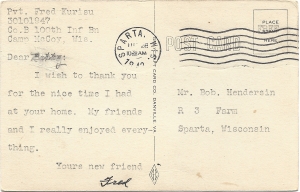 Pvt. Fred Kurisu
30101947
Co.B 100th Inf Bn
Camp McCoy, Wis.
Dear Bobby:
I wish to thank you
for the nice time I had
at your home. My friends
and I really enjoyed every-
thing.
Yours new friend
Fred
SPARTA, WIS.
1942
POST CARD
PLACE
CARD CO. DANVILLE, VA.
Mr. Bob. Hendersin
R 3 Farm
Sparta, Wisconsin